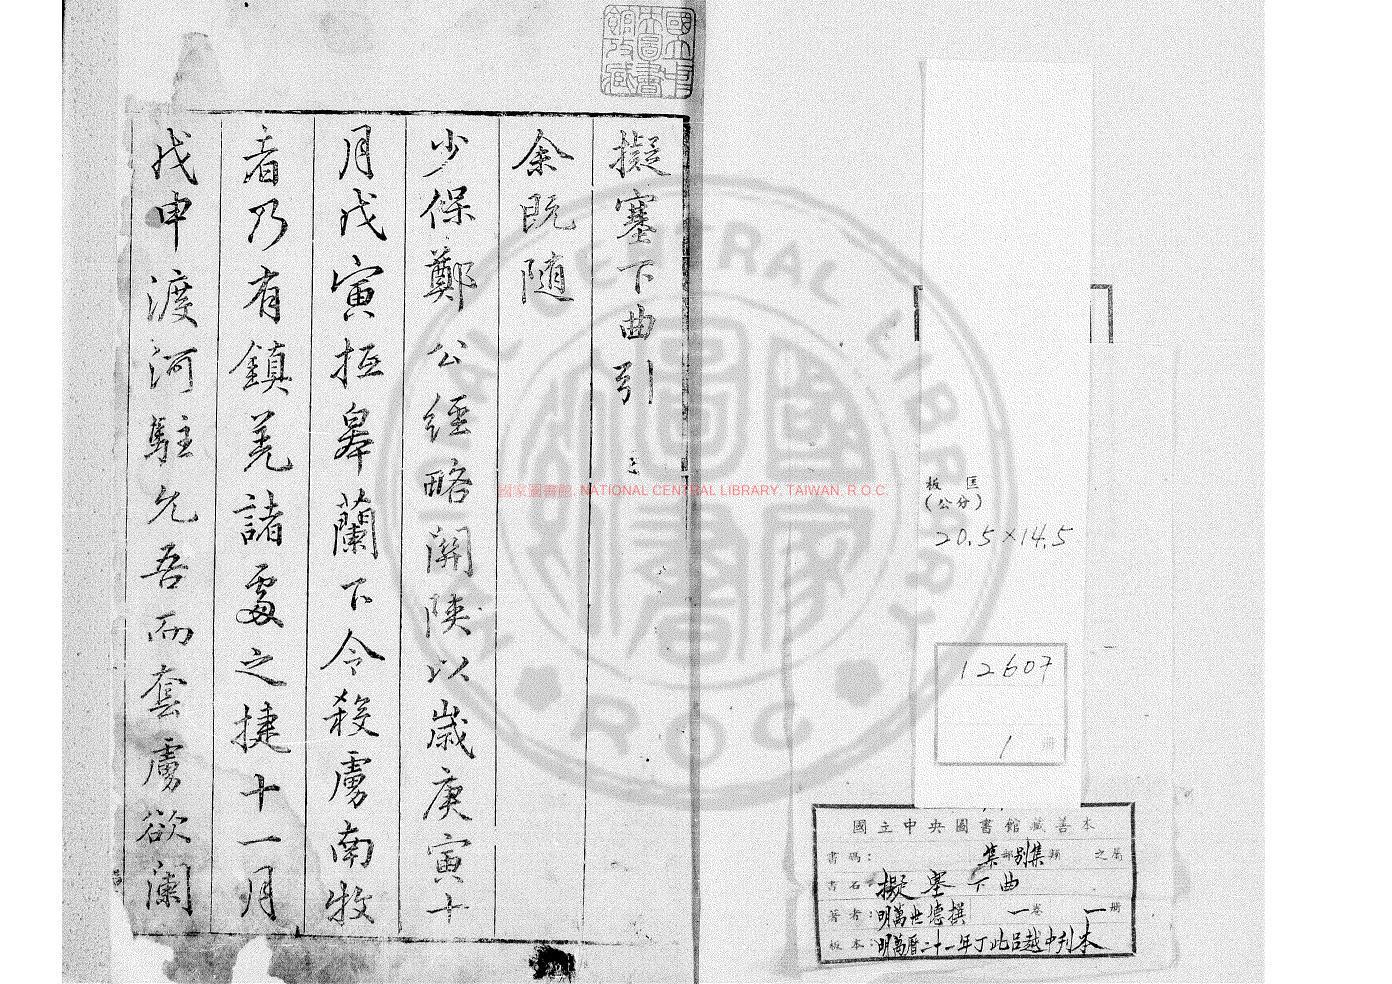 擬塞下曲引
余既随
少保鄭公經略關陝以歲庚寅十
月戊寅抵皋蘭下令殺虜南牧
者乃有鎮羌諸處之捷十一月
戊申渡河駐允吾而套虜欲闌
國立中央圖書館攷藏
板匡
(公分)
20.5×14.5
12607
1 冊
國立中央圖書館藏善本
書碼： 集部別集類 之屬
書名：擬塞下曲
著者：明萬世德撰 一卷 一冊
板本：明萬曆二十一年丁此呂越中刊本
國家圖書館, NATIONAL CENTRAL LIBRARY, TAIWAN, R.O.C.
NATIONAL CENTRAL LIBRARY
ROC
國家圖書